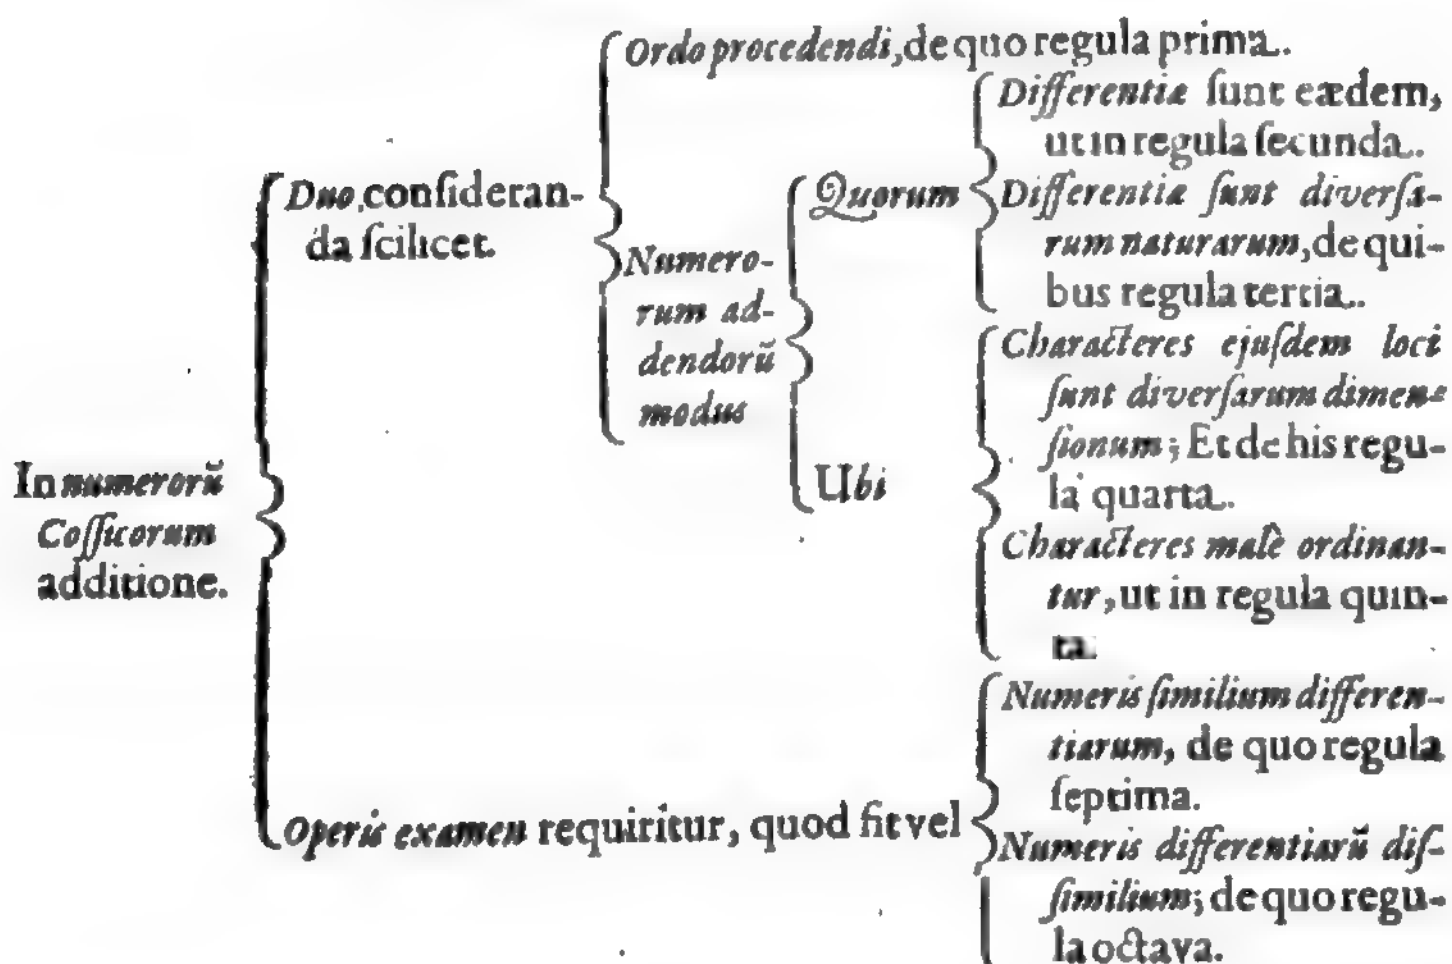 In numerorũ
Coſſicorum
additione.
Duo, conſideran-
da ſcilicet.
Ordo procedendi, de quo regula prima.
Numero-
rum ad-
dendorũ
modus
Quorum
Differentiæ ſunt eædem,
ut in regula ſecunda.
Differentiæ ſunt diverſa-
rum naturarum, de qui-
bus regula tertia.
Ubi
Characteres ejuſdem loci
ſunt diverſarum dimen-
ſionum; Et de his regu-
la quarta.
Characteres malè ordinan-
tur, ut in regula quin-
ta.
Operis examen requiritur, quod fit vel
Numeris ſimilium differen-
tiarum, de quo regula
ſeptima.
Numeris differentiarũ diſ-
ſimilium; de quo regu-
la octava.